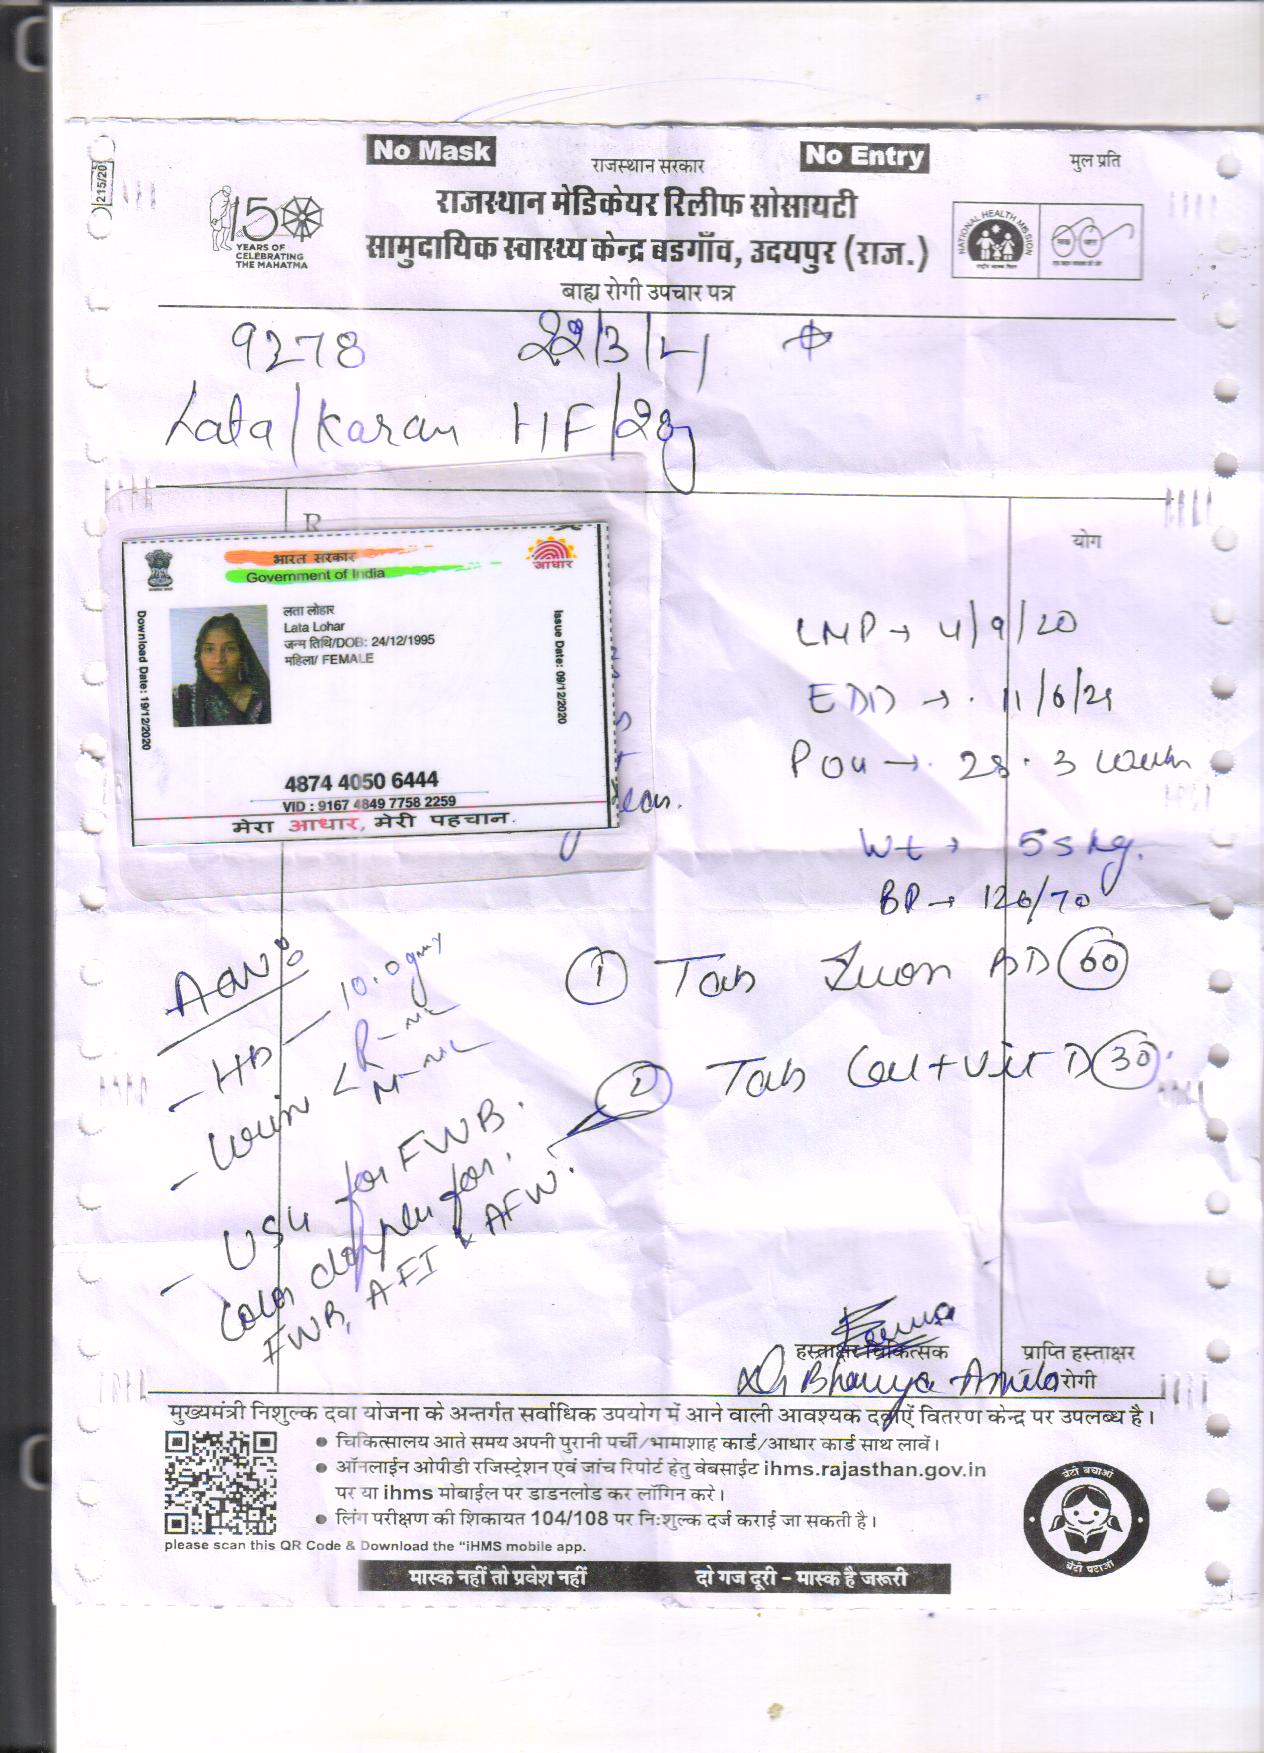 215/20
No Mask
राजस्थान सरकार
No Entry
मुल प्रति
राजस्थान मेडिकेयर रिलीफ सोसायटी
सामुदायिक स्वास्थ्य केन्द्र बडगाँव, उदयपुर (राज.)
बाह्य रोगी उपचार पत्र
150
YEARS OF
CELEBRATING
THE MAHATMA
NATIONAL HEALTH MISSION
9278 22/3/21
Lata/Karan HF/28y
R
योग
भारत सरकार
Government of India
आधार
लता लोहार
Lata Lohar
जन्म तिथि/DOB: 24/12/1995
महिला/ FEMALE
Download Date: 19/12/2020
Issue Date: 09/12/2020
4874 4050 6444
VID : 9167 4849 7758 2259
मेरा आधार, मेरी पहचान
LMP → 4/9/20
EDD → 11/6/21
POG → 28.3 weeks
Wt → 55 kg.
BP → 120/70
Adv:
- HB - 10.0 gm%
- Urine < R - NIL
M - NIL
- USG for FWB.
Color doppler for
FWB, AFI & AFW.
① Tab Iron BD 60
② Tab Cal+Vit D 30
हस्ताक्षर चिकित्सक
प्राप्ति हस्ताक्षर
रोगी
मुख्यमंत्री निशुल्क दवा योजना के अन्तर्गत सर्वाधिक उपयोग में आने वाली आवश्यक दवाऐं वितरण केन्द्र पर उपलब्ध है।
• चिकित्सालय आते समय अपनी पुरानी पर्ची/भामाशाह कार्ड/आधार कार्ड साथ लावें।
• ऑनलाईन ओपीडी रजिस्ट्रेशन एवं जांच रिपोर्ट हेतु वेबसाईट ihms.rajasthan.gov.in
पर या ihms मोबाईल पर डाडनलोड कर लॉगिन करे।
• लिंग परीक्षण की शिकायत 104/108 पर नि:शुल्क दर्ज कराई जा सकती है।
please scan this QR Code & Download the "iHMS mobile app.
बेटी बचाओ
बेटी पढ़ाओ
मास्क नहीं तो प्रवेश नहीं
दो गज दूरी - मास्क है जरूरी